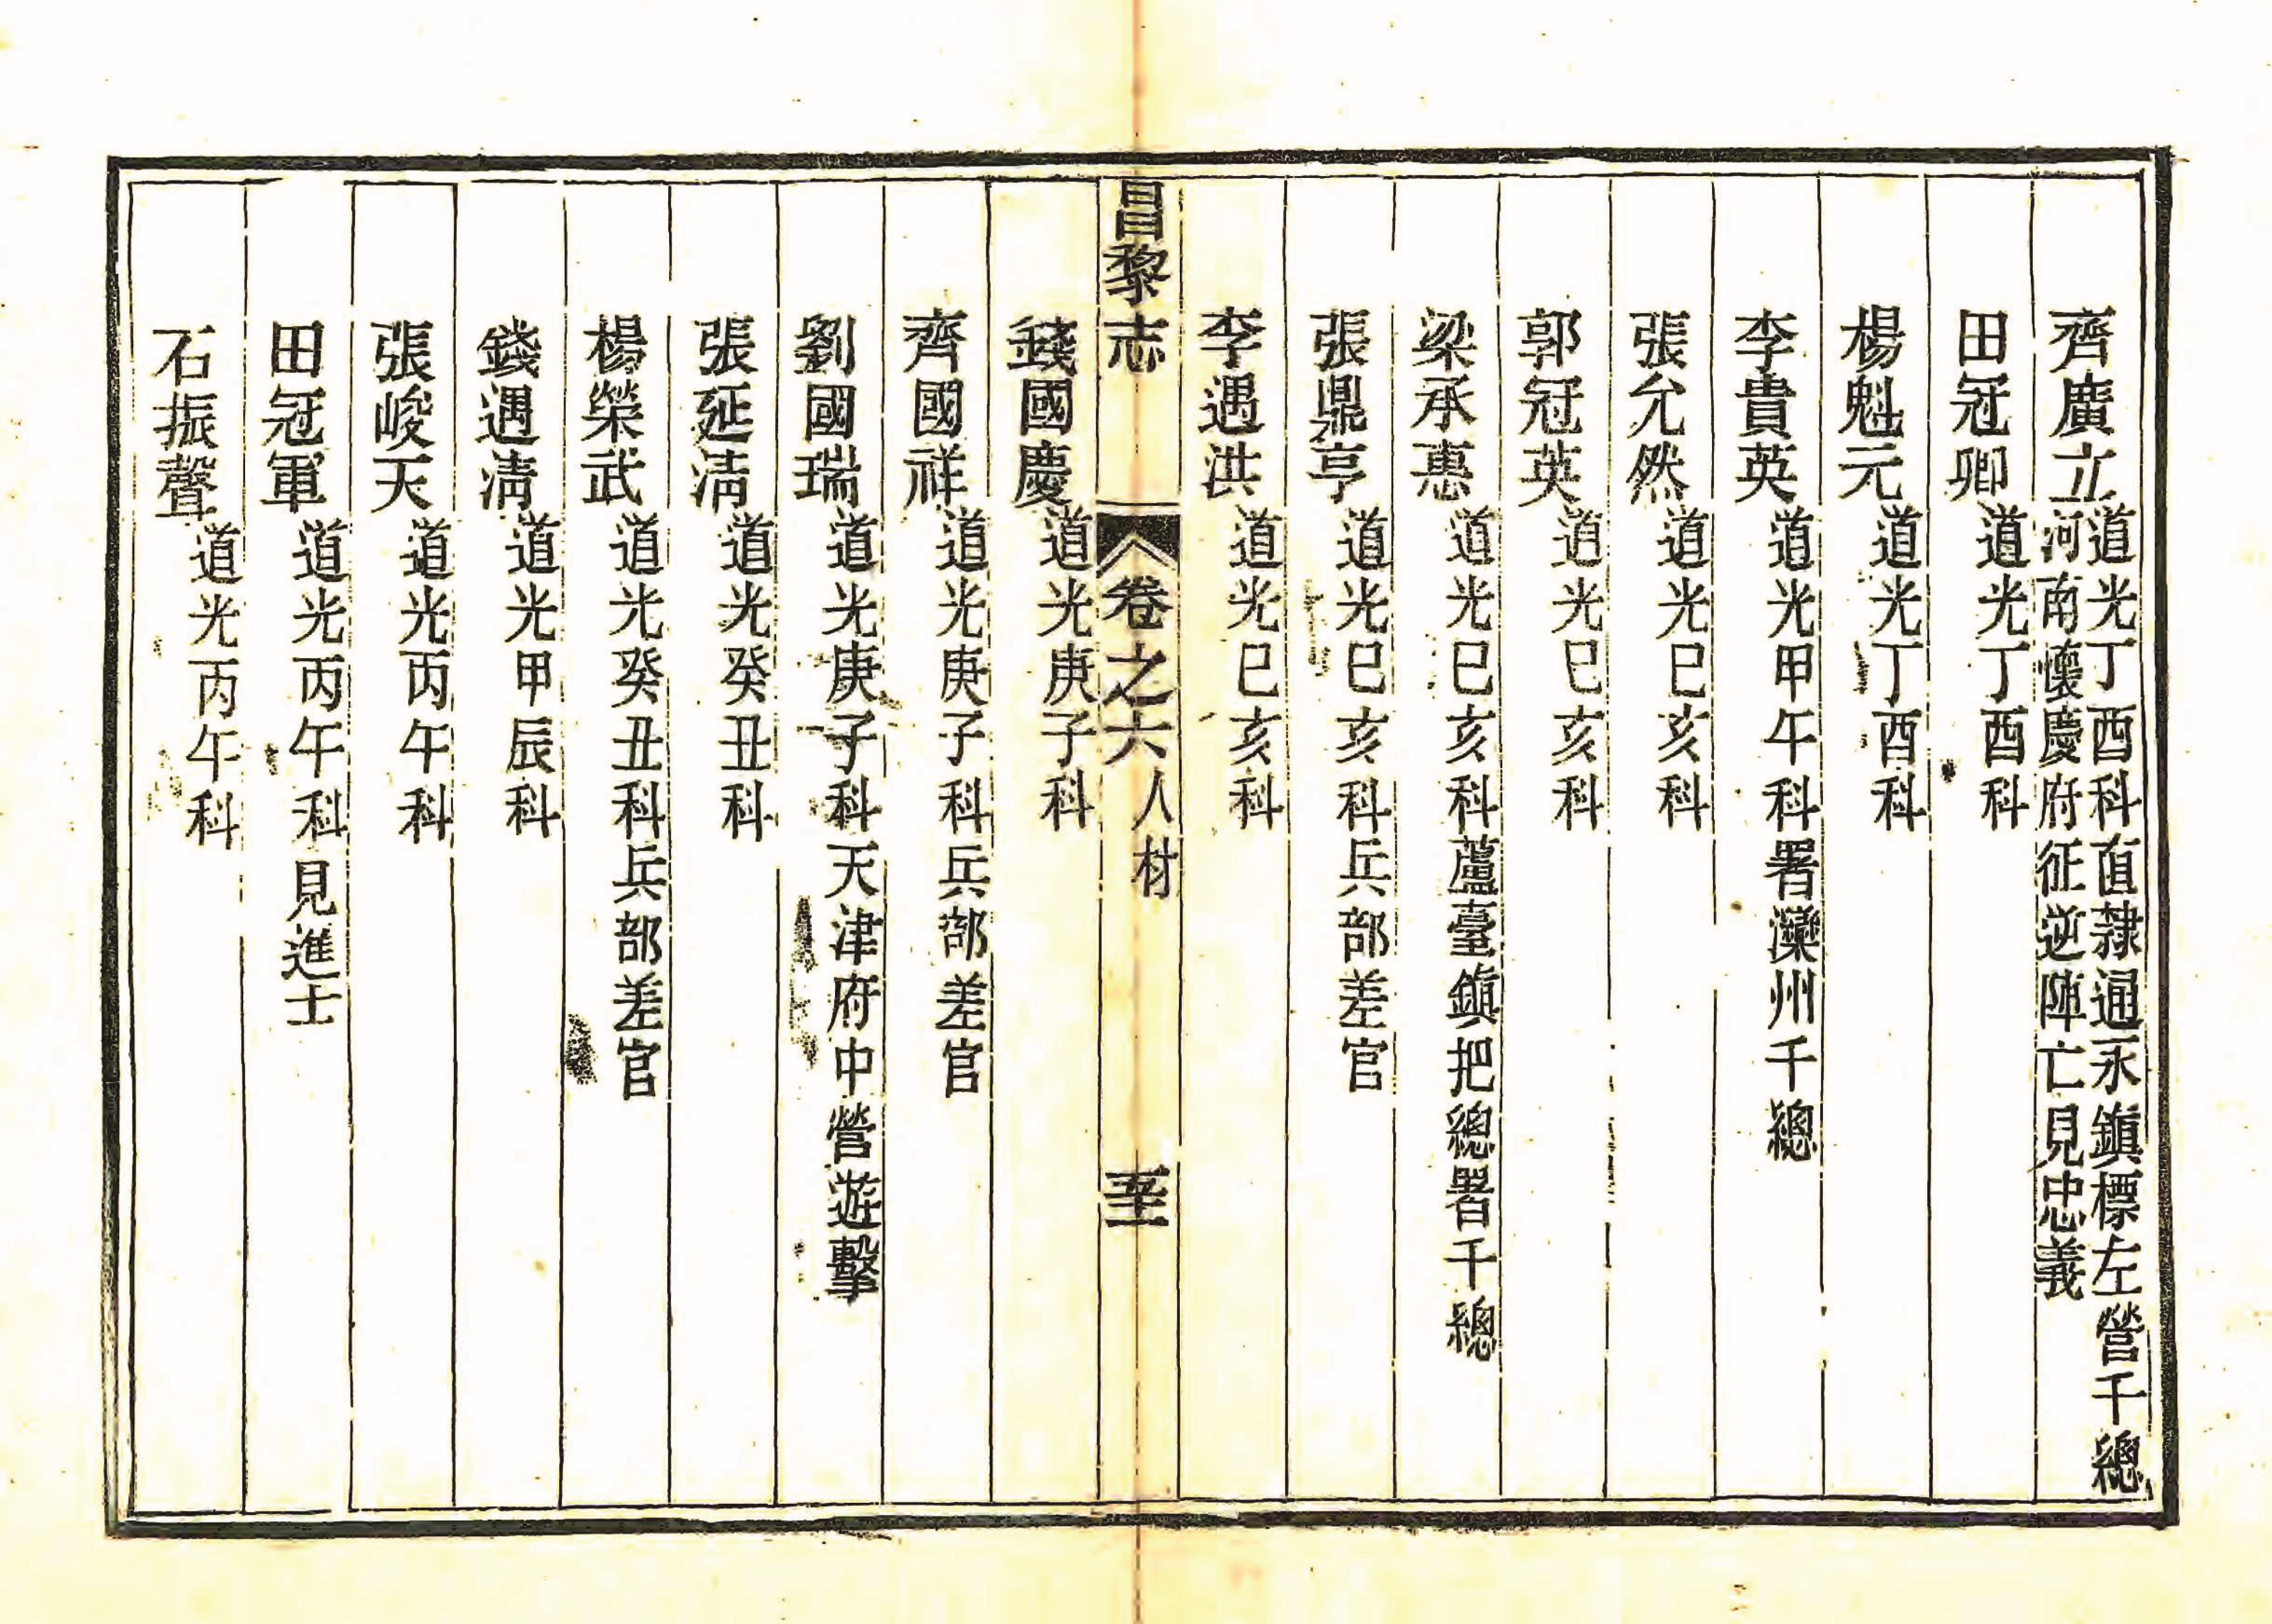 齊廣立道光丁酉科直隸通永鎮標左營千總
河南懷慶府征逆陣亡見忠義
田冠卿道光丁酉科
楊魁元道光丁酉科
李貴英道光甲午科署灤州千總
張允然道光已亥科
郭冠英道光已亥科
梁承惠道光已亥科蘆臺鎮把總署千總
張鼎亨道光已亥科兵部差官
李遇洪道光已亥科
昌黎志 卷之六 人材
錢國慶道光庚子科
齊國祥道光庚子科兵部差官
劉國瑞道光庚子科天津府中營遊擊
張延清道光癸丑科
楊榮武道光癸丑科兵部差官
錢遇清道光甲辰科
張峻天道光丙午科
田冠軍道光丙午科見進士
石振聲道光丙午科